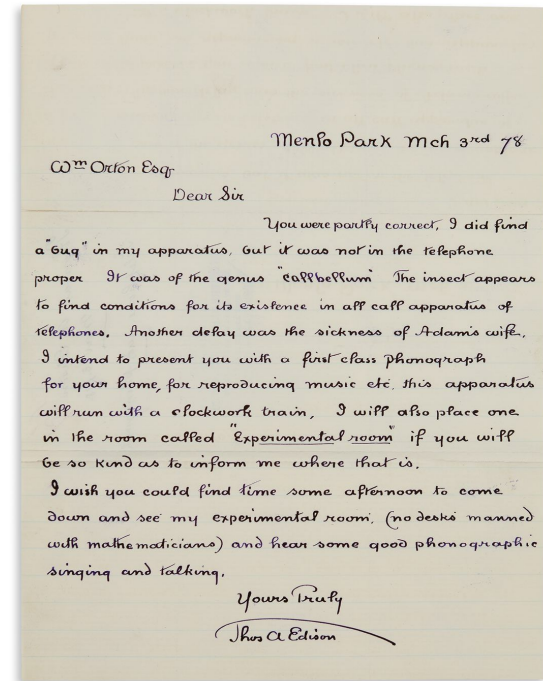 Menlo Park Mch 3rd 78
Wm Orton Esq
Dear Sir
You were partly correct, I did find
a "bug" in my apparatus, but it was not in the telephone
proper It was of the genus "callbellum" The insect appears
to find conditions for its existence in all call apparatus of
telephones. Another delay was the sickness of Adams wife.
I intend to present you with a first class phonograph
for your home, for reproducing music etc. this apparatus
will run with a clockwork train, I will also place one
in the room called "Experimental room" if you will
be so kind as to inform me where that is.
I wish you could find time some afternoon to come
down and see my experimental room, (no desks manned
with mathematicians) and hear some good phonographic
singing and talking.
Yours Truly
Thos A Edison